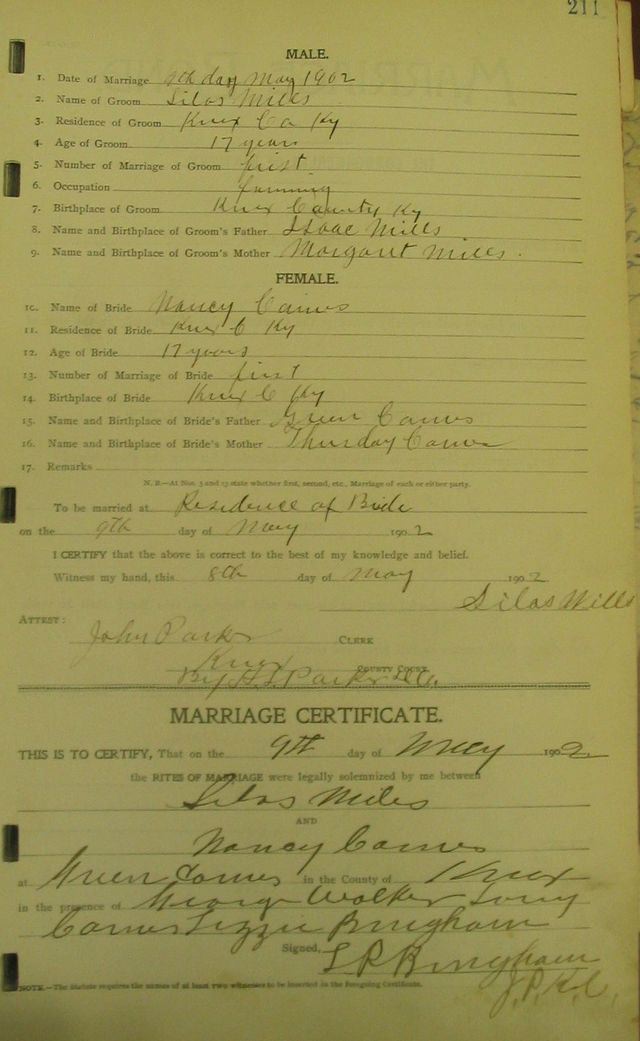 211
MALE.
1. Date of Marriage 9th day May 1902
2. Name of Groom Silas Mills
3. Residence of Groom Knox Co Ky
4. Age of Groom 17 years
5. Number of Marriage of Groom first
6. Occupation farming
7. Birthplace of Groom Knox County Ky
8. Name and Birthplace of Groom's Father Isaac Mills
9. Name and Birthplace of Groom's Mother Margaret Mills.
FEMALE.
10. Name of Bride Nancy Carnes
11. Residence of Bride Knox C Ky
12. Age of Bride 17 years
13. Number of Marriage of Bride first
14. Birthplace of Bride Knox C Ky
15. Name and Birthplace of Bride's Father Green Carnes
16. Name and Birthplace of Bride's Mother Thursday Carnes
17. Remarks
N. B.—At Nos. 5 and 13 state whether first, second, etc., Marriage of each or either party.
To be married at Residence of Bride
on the 9th day of May 1902
I CERTIFY that the above is correct to the best of my knowledge and belief.
Witness my hand, this 8th day of May 1902
Silas Mills
ATTEST:
John Parker CLERK
Knox COUNTY COURT.
By Parker D.C.
MARRIAGE CERTIFICATE.
THIS IS TO CERTIFY, That on the 9th day of May 1902
the RITES OF MARRIAGE were legally solemnized by me between
Silas Mills
AND
Nancy Carnes
at Green Carnes in the County of Knox
in the presence of George Walker
Carnes Lizzie Bingham
Signed, Bingham
J.P.K.C.
NOTE.—The Statute requires the names of at least two witnesses to be inserted in the foregoing Certificate.